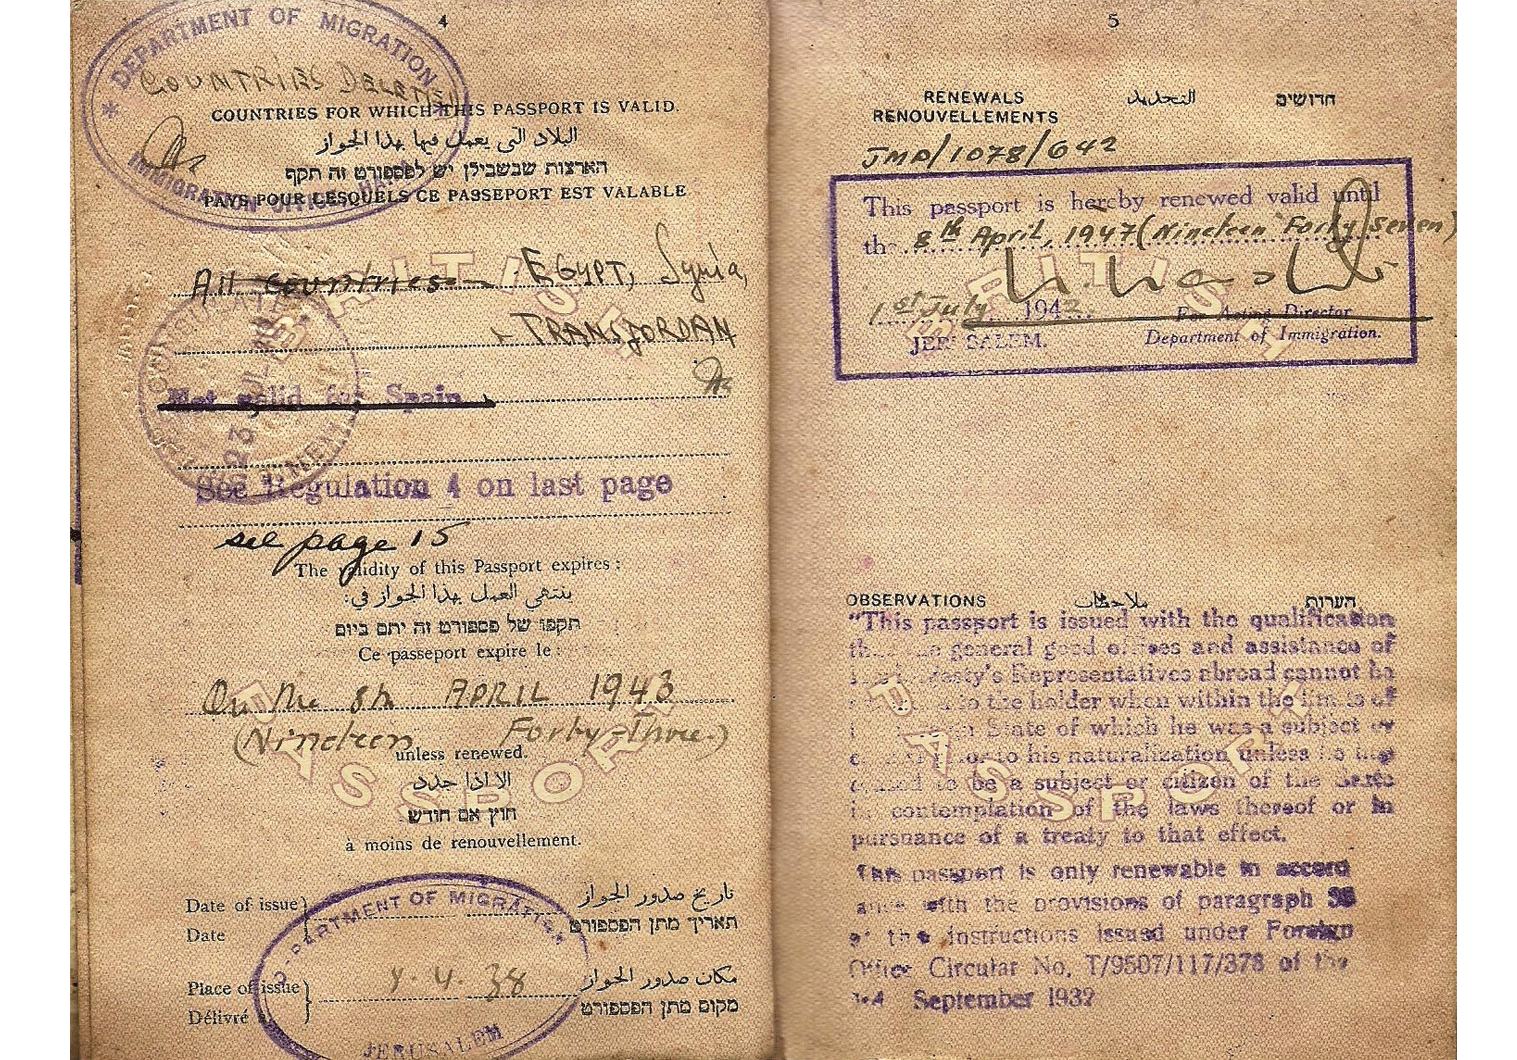 4
DEPARTMENT OF MIGRATION
COUNTRIES DELETED
COUNTRIES FOR WHICH THIS PASSPORT IS VALID.
البلاد التى يعمل فيها بهذا الجواز
הארצות שבשבילן יש לפספורט זה תקף
PAYS POUR LESQUELS CE PASSEPORT EST VALABLE
IMMIGRATION OFFICE
All countries EGYPT, Syria,
+ TRANSJORDAN
Not valid for Spain
23 JUL
See Regulation 4 on last page
see page 15
The validity of this Passport expires:
ينتهى العمل بهذا الجواز في:
תקפו של פספורט זה יתם ביום
Ce passeport expire le:
On the 8th APRIL 1943
(Nineteen Forty-Three.)
unless renewed.
الا اذا جدد
חוץ אם חודש
à moins de renouvellement.
BRITISH
PASSPORT
Date of issue تاريخ صدور الجواز
Date תאריך מתן הפספורט
DEPARTMENT OF MIGRATION
Place of issue 7.4.38 مكان صدور الجواز
Délivré à מקום מתן הפספורט
JERUSALEM
5
RENEWALS التجديد חדושים
RENOUVELLEMENTS
JMD/1078/642
This passport is hereby renewed valid until
the 8th April, 1947 (Nineteen Forty Seven)
1st July 1942 For Acting Director
JERUSALEM. Department of Immigration.
BRITISH
OBSERVATIONS ملاحظات הערות
"This passport is issued with the qualification
that the general good offices and assistance of
Majesty's Representatives abroad cannot be
to the holder when within the limits of
the foreign State of which he was a subject or
citizen prior to his naturalization unless he has
ceased to be a subject or citizen of the State
in contemplation of the laws thereof or in
pursuance of a treaty to that effect.
PASSPORT
This passport is only renewable in accord
ance with the provisions of paragraph
of the instructions issued under Foreign
Office Circular No. T/9507/117/378 of the
September 1932